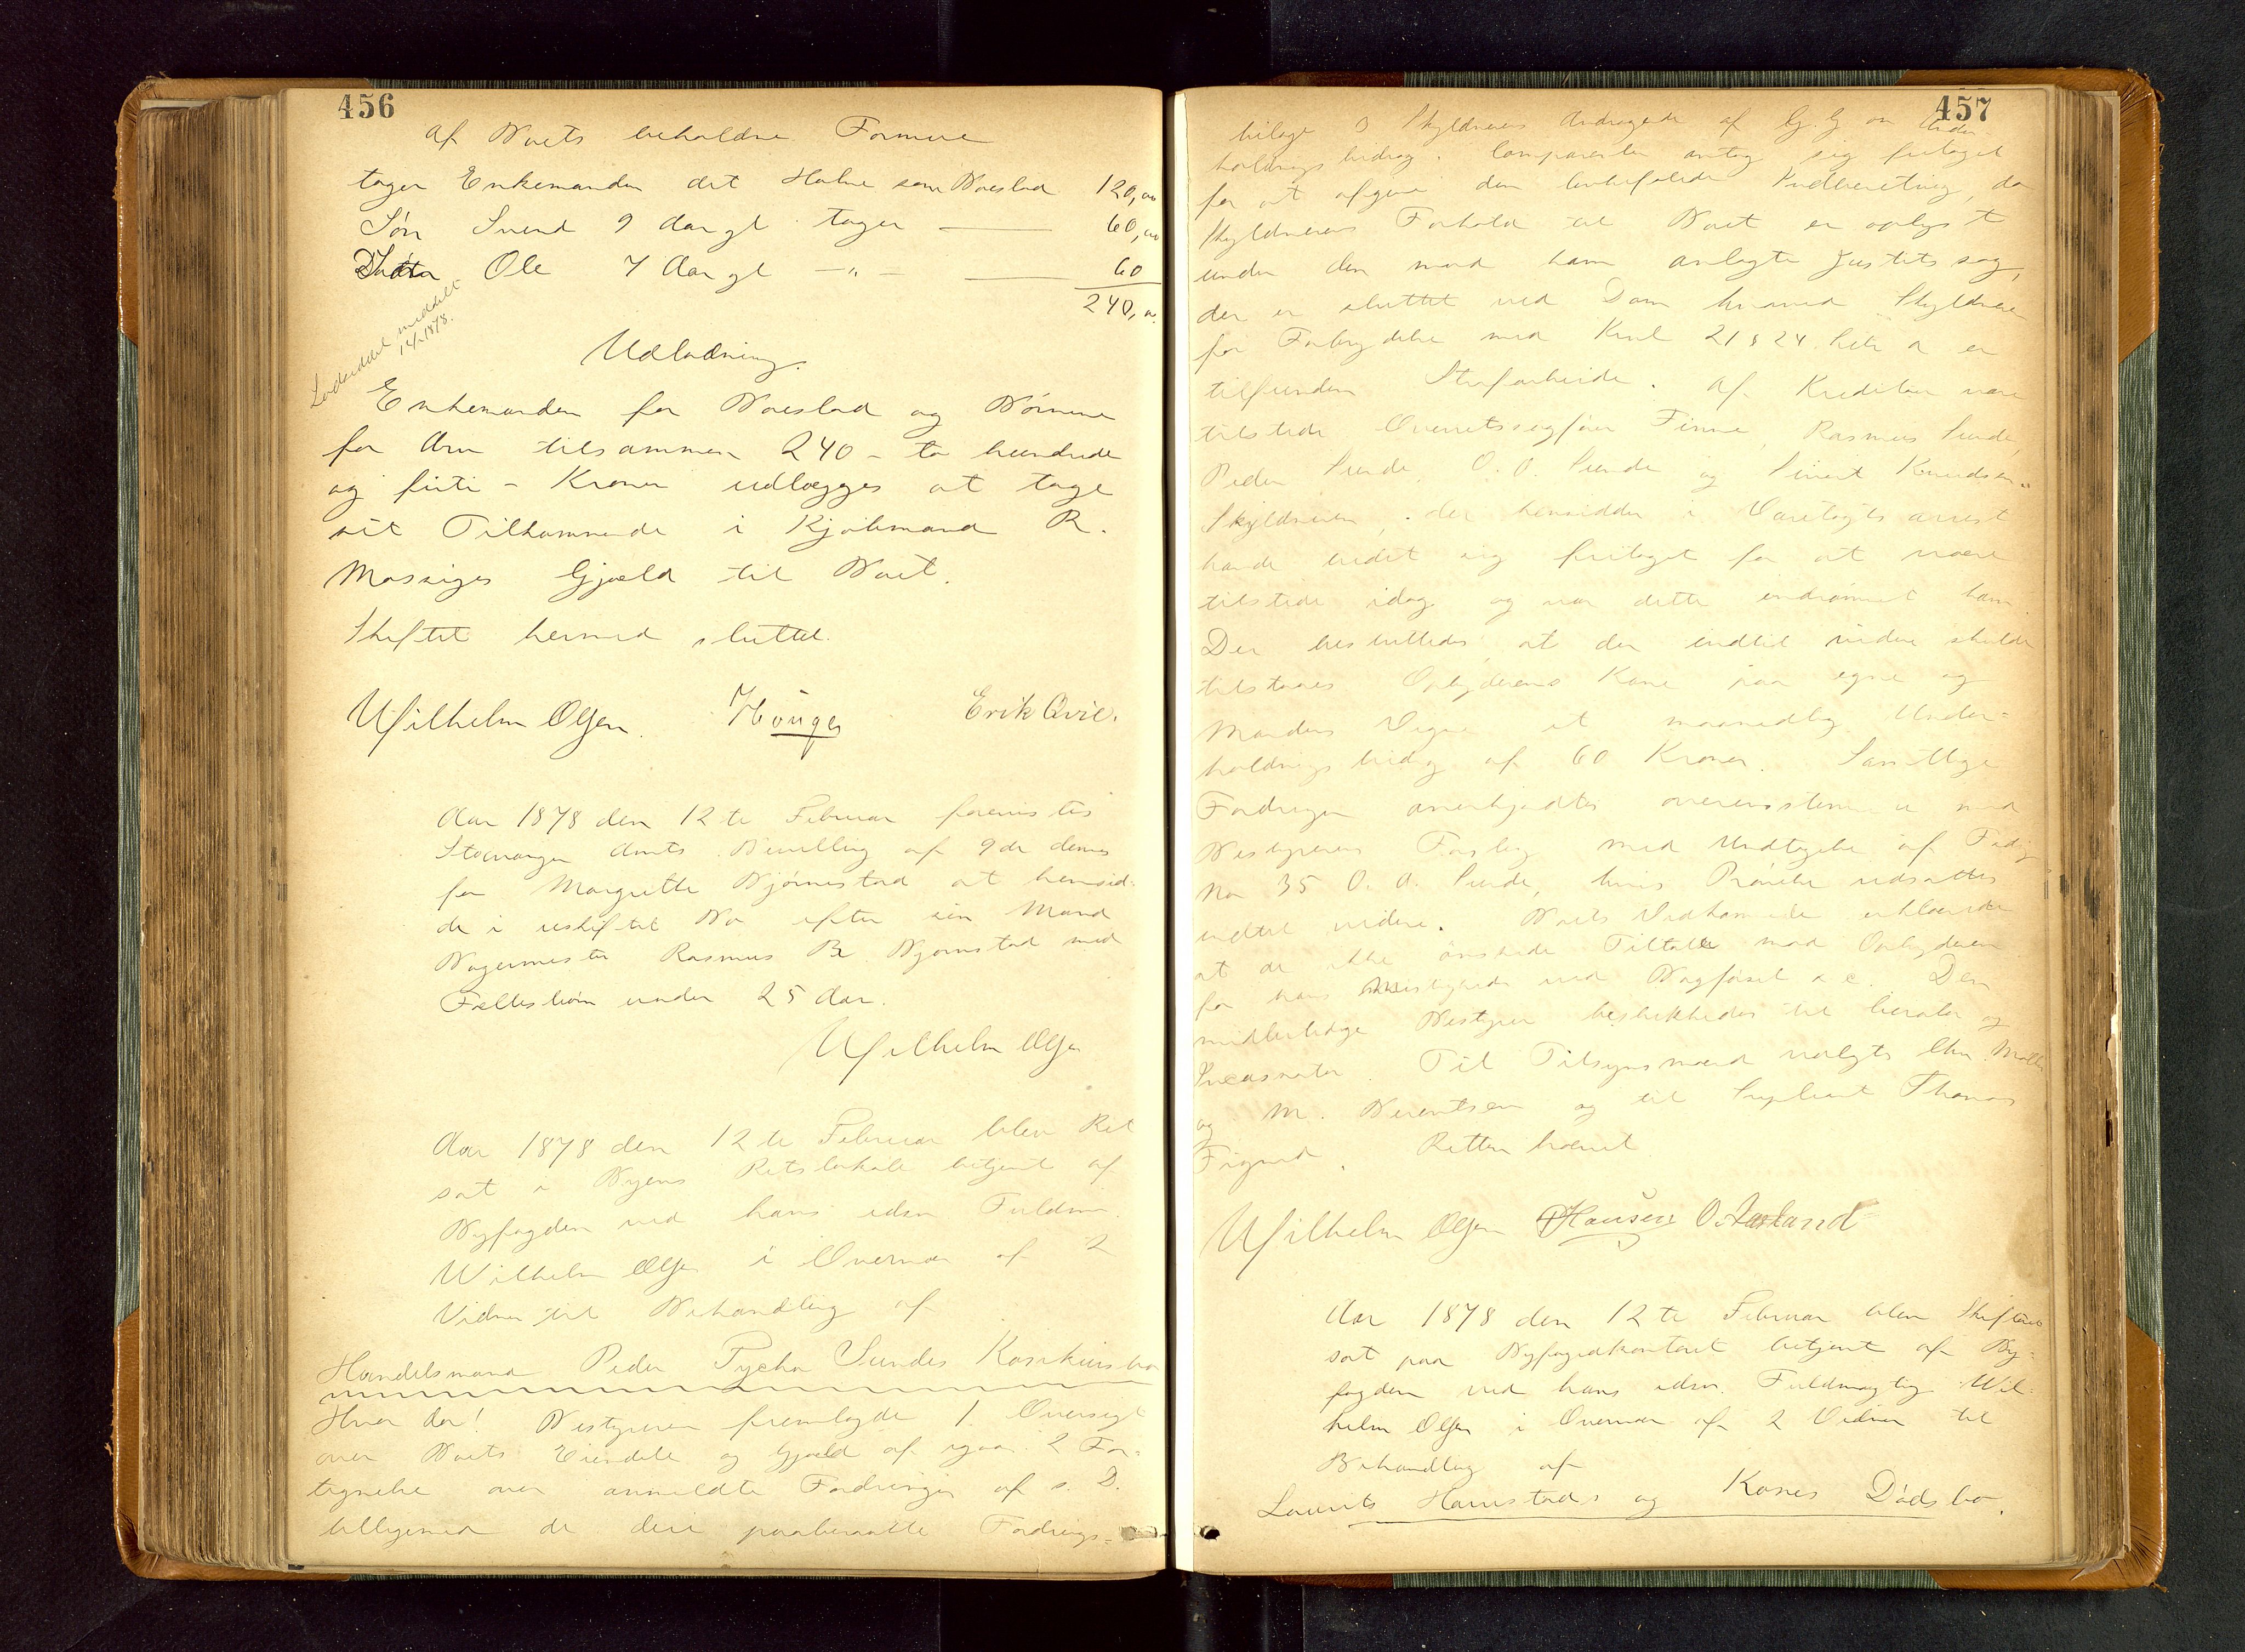 456
Af Boets beholdne Formue
tager Enkemanden det Halve som Boeslod 120,00
Søn Svend 9 Aar gl tager 60,00
Ole 7 Aar gl - " - 60
240,
meddelt
1878.
Udlodning.
Enkemanden for Boeslod og Børnene
for Arv tilsammen 240 - to hundrede
og firti - Kroner udlægges at tage
sit Tilkommende i Kjøbmand R.
Massiges Gjæld til Boet.
Skiftet hermed sluttet.
Wilhelm Olsen. Erik Qvie.
Aar 1878 den 12te Februar forevistes
Stavanger Amts Bevilling af 9de dennes
for Margrethe Bjørnestad at hensid-
de i uskiftet Bo efter sin Mand
Bagermester Rasmus B. Bjørnstad med
Fællesbørn under 25 Aar.
Wilhelm Olsen
Aar 1878 den 12te Februar blev Ret
sat i Byens Retslokale betjent af
Byfogden ved hans edsv. Fuldm.
Wilhelm Olsen i Overvær af 2
Vidner til Behandling af
Handelsmand Peder Tycho Sundes Konkursbo
Hvor da! Bestyreren fremlagde 1. Oversigt
over Boets Eiendele og Gjæld af igaar. 2 For-
tegnelse over anmeldte Fordringer af s. D.
tilligemed de deri paaberaabte Fordrings-
457
bilage 3 Skyldnerens Andragende af G. G om Under-
holdnings bidrag. Comparenten antog sig fritaget
for at afgive den Indberetning, da
Skyldnerens Forhold til Boet er oplyst
under den mod ham anlagte Justitssag,
der er sluttet ved Dom hvorved Skyldneren
for Forbrydelse mod Krml 21 § 24 a er
tilfunden Strafarbeide. Af Kreditorer vare
tilstede Overretssagfører Finne, Rasmus Sunde,
Peder Sunde, O. O. Sunde og Sivert Knudsen.
Skyldneren, der hensidder i Varetægtsarrest
havde bedet sig fritaget for at være
tilstede idag og var dette indrømmet ham.
Der besluttedes, at der indtil videre skulde
tilstaaes Opbyderens Kone paa egne og
Mandens Vegne et maanedlig Under-
holdningsbidrag af 60 Kroner. Samtlige
Fordringer anerkjendtes overensstemmende med
Bestyrerens Forslag med Undtagelse af Fordrg
No 35 O. O. Sunde, hvis Prøvelse udsattes
indtil videre. Boets Vedkommende erklærede
at de ikke ønskede Tiltale mod Opbyderen
for hans ved Bogførsel o. c. Den
midlertidige Bestyrer beskikkedes til Curator og
Incassator. Til Tilsynsmænd valgtes Chr. Møller
og M. Berentsen og til Supleant Thomas
Fignad. Retten hævet
Wilhelm Olsen Hansen O. Aasland
Aar 1878 den 12te Februar blev Skifteret
sat paa Byfogedkontoret betjent af By-
fogden ved hans edsv. Fuldmægtig Wil-
helm Olsen i Overvær af 2 Vidner til
Behandling af
Laurits Hanestads og Kones Dødsbo.